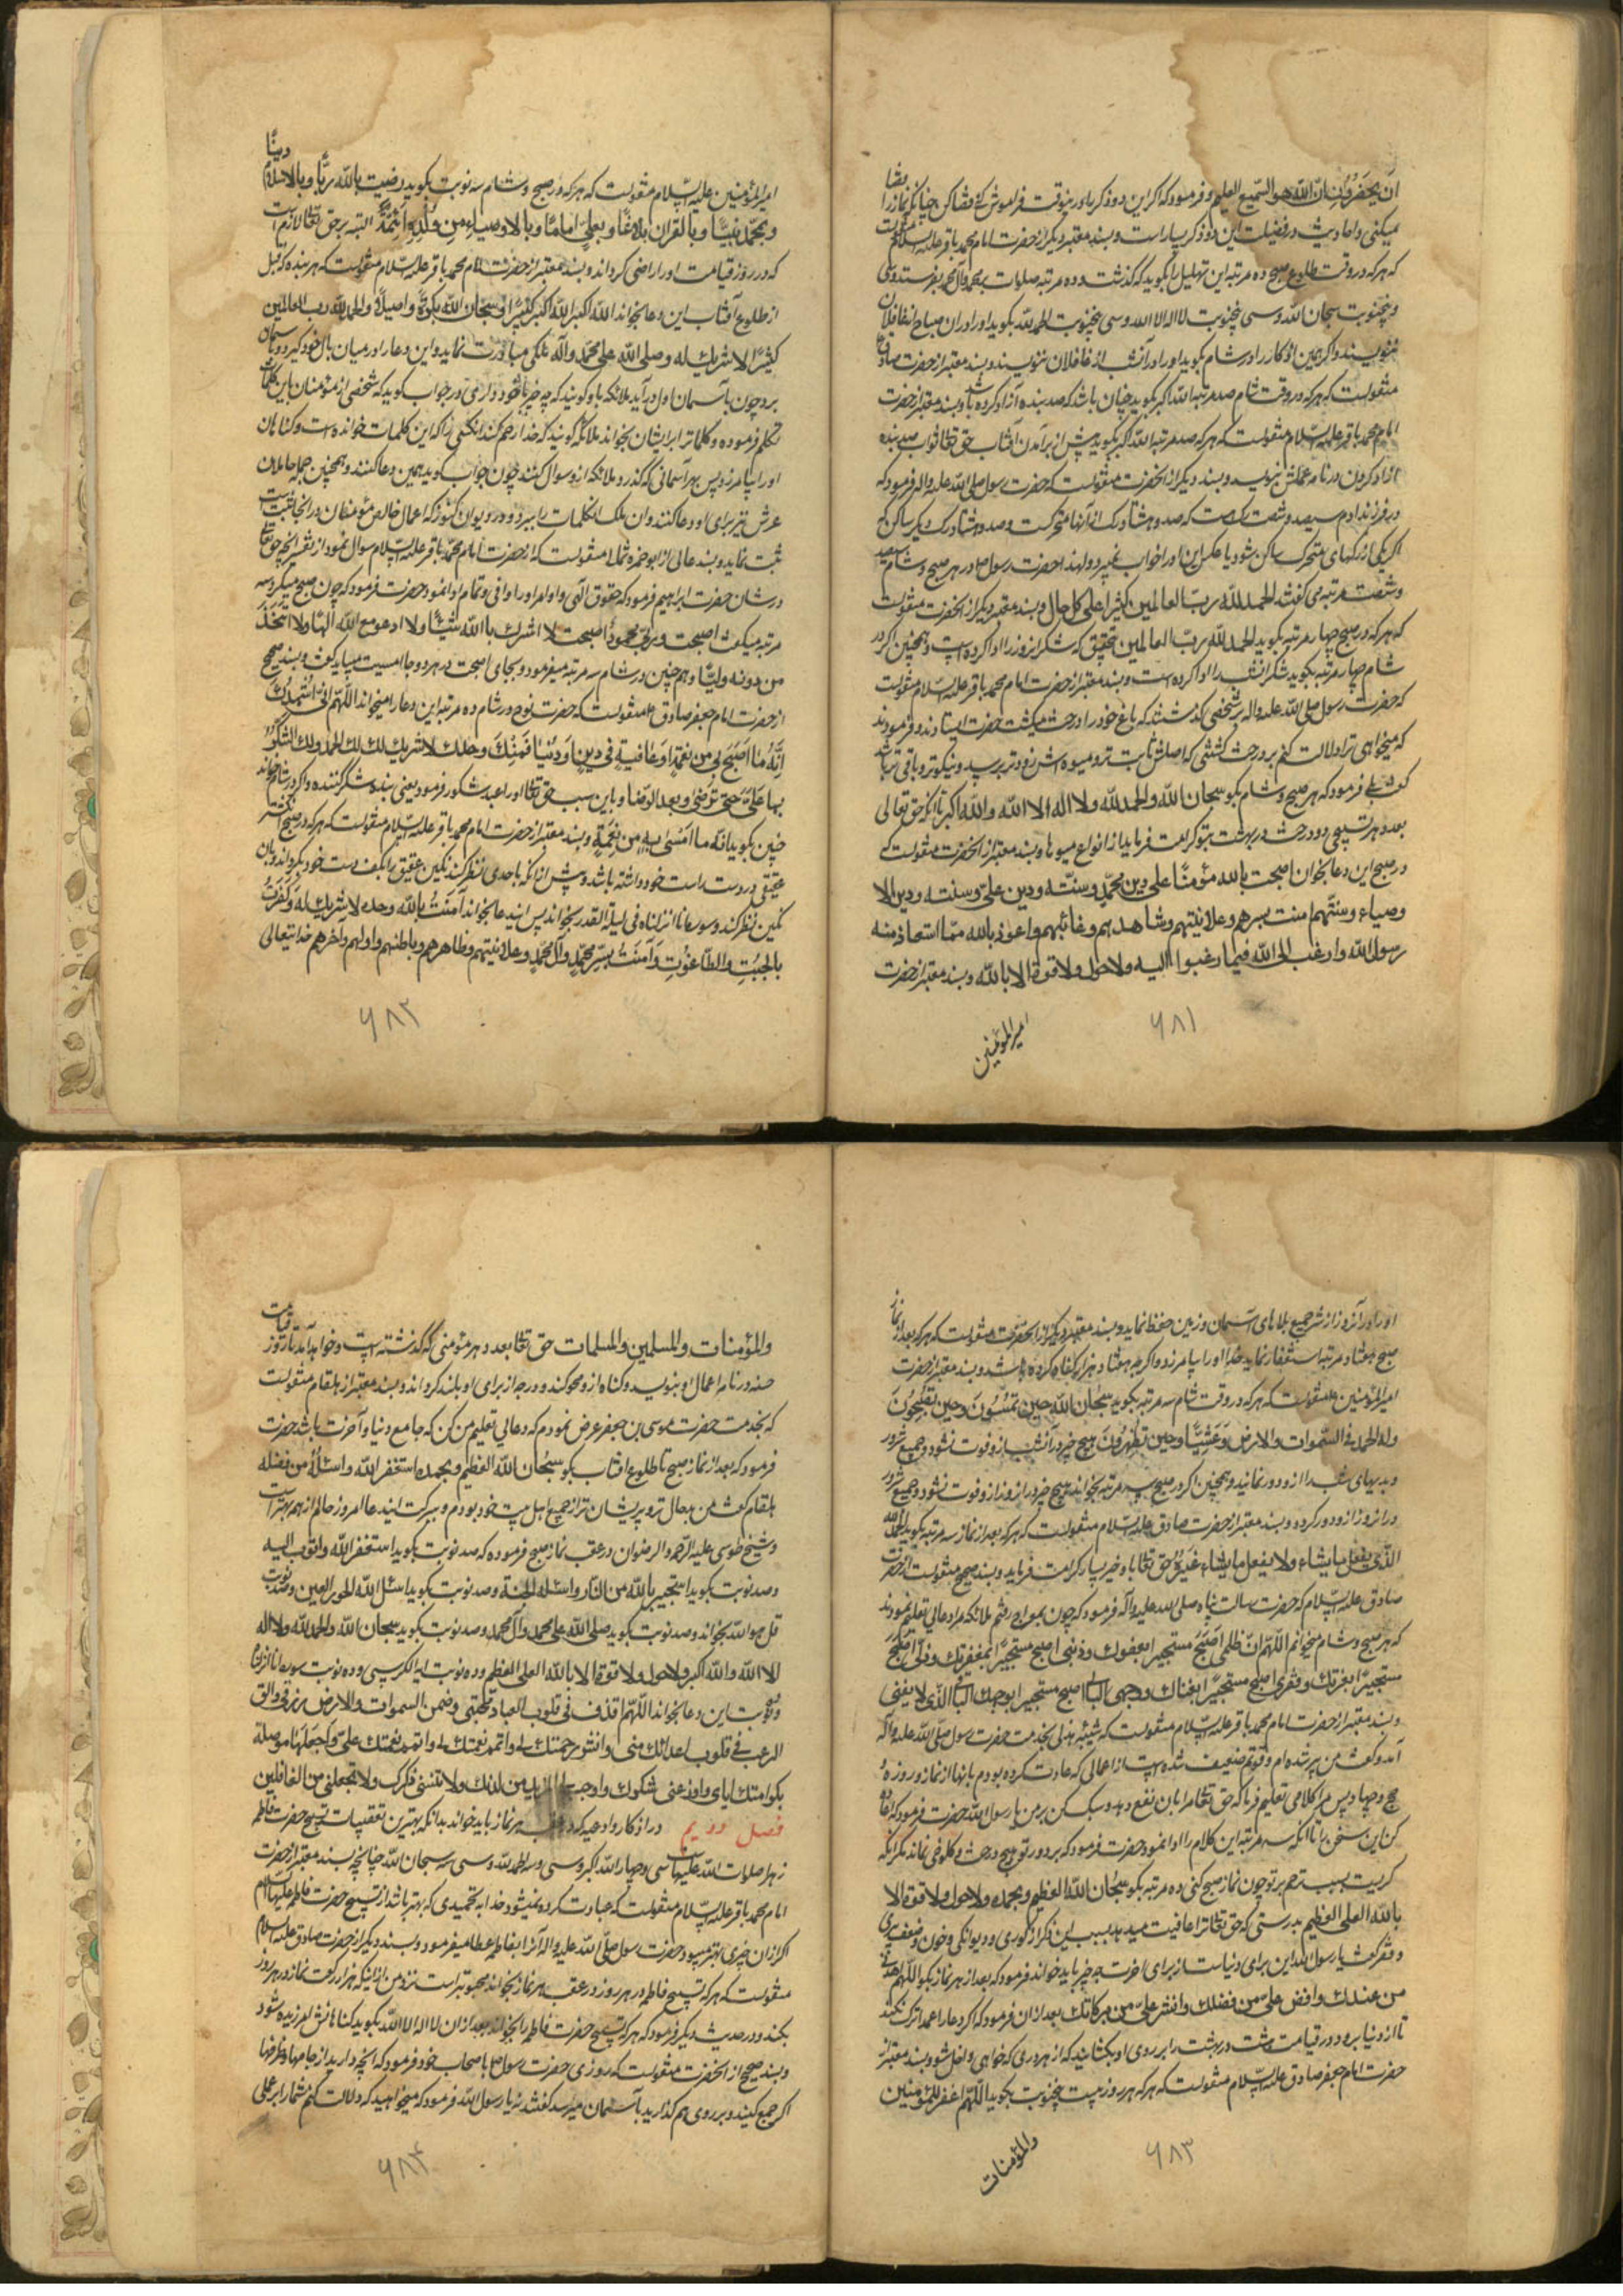 ان یحضرون ان الله هو السمیع العلیم و فرمود که اگر این دو ذکر را در این وقت فراموش کنی قضا کن چنانکه نماز را قضا
میکنی و احادیث در فضیلت این دو ذکر بسیار است و بسند معتبر دیگر از حضرت امام محمد باقر علیه السلام منقولست
که هر که در وقت طلوع صبح ده مرتبه این تهلیل را بگوید که گذشت و ده مرتبه صلوات بر محمد و آل محمد بفرستد و سی
و پنجنوبت سبحان الله و سی و پنجنوبت لا اله الا الله و سی و پنجنوبت الحمد لله بگوید او را در آن صباح از غافلان
ننویسند و اگر همین اذکار را در شام بگوید او را در آنشب از غافلان ننویسند و بسند معتبر از حضرت صادق ع
منقولست که هر که در وقت شام صد مرتبه الله اکبر بگوید چنان باشد که صد بنده آزاد کرده باشد و بسند معتبر از حضرت
امام محمد باقر علیه السلام منقولست که هر که صد مرتبه الله اکبر بگوید پیش از برآمدن آفتاب حق تعالی ثواب صد بنده
ازاد کردن در نامه عملش بنویسد و بسند دیگر از انحضرت منقولست که حضرت رسول صلی الله علیه واله فرمود که
در فرزند ادم سیصد و شصت رک است که صد و هشتاد رک از آنها متحرکست و صد و هشتاد رک دیگر ساکن که
اگر یکی از رکهای متحرک ساکن شود یا عکس این او را خواب نمیبرد و لهذا حضرت رسول ص در هر صبح و شام سیصد
و شصت مرتبه می گفت الحمد لله رب العالمین کثیرا علی کل حال و بسند معتبر دیگر از انحضرت منقولست
که هر که در صبح چهار مرتبه بگوید الحمد لله رب العالمین بتحقیق که شکر انروز را ادا کرده است و همچنین اگر در
شام چهار مرتبه بگوید شکر انشب را ادا کرده است و بسند معتبر از حضرت امام محمد باقر علیه السلام منقولست
که حضرت رسول صلی الله علیه واله بر شخصی گذشتند که باغ خود را درخت میکشت حضرت ایستادند و فرمودند
که میخواهی ترا دلالت کنم بر درخت کشتی که اصلش ثابت تر و میوه اش زودتر برسد و نیکوتر و باقی تر باشد
گفت بلی فرمود که هر صبح و شام بگو سبحان الله والحمد لله ولا اله الا الله والله اکبر تا آنکه حق تعالی
بعدد هر تسبیحی ده درخت در بهشت بتو کرامت فرماید از انواع میوها و بسند معتبر از انحضرت منقولست که
در صبح این دعا بخوان اصبحت بالله مؤمنا علی دین محمد و سنته و دین علی و سنته و دین الا
وصیاء و سنتهم امنت بسرهم وعلانیتهم وشاهدهم وغائبهم واعوذ بالله مما استعاذ منه
رسول الله وارغب الی الله فیما رغبوا الیه ولا حول ولا قوة الا بالله و بسند معتبر از حضرت
امیر المؤمنین
۶۸۱
امیر المؤمنین علیه السلام منقولست که هر که در صبح و شام سه نوبت بگوید رضیت بالله ربا وبالاسلام دینا
وبمحمد نبیا وبالقران بلاغا وبعلی اماما وبالاوصیاء من ولده ائمة البته بر حق تعالی لازم است
که در روز قیامت او را راضی کرداند و بسند معتبر از حضرت امام محمد باقر علیه السلام منقولست که هر بنده که قبل
از طلوع آفتاب این دعا بخواند الله اکبر الله اکبر کبیرا وسبحان الله بکرة واصیلا والحمد لله رب العالمین
کثیرا لا شریک له وصلی الله علی محمد واله ملکی مبادرت نماید و این دعا را در میان بال خود گیرد و باسمان
برد چون بآسمان اول درآید ملائکه باو گویند که چه چیز با خود داری در جواب گوید که شخصی از مؤمنان باین کلمات
تکلم فرموده و کلمات را بر ایشان بخواند ملائکه گویند که خدا رحم کند انکسی را که این کلمات خوانده است و گناهان
او را بیامرزد پس بهر آسمانی که گذرد و ملائکه ازو سوال کنند چون جواب گوید همین دعا کنند و همچنین حمله حاملان
عرش نیز برای او دعا کنند و ان ملک انکلمات را ببرد و در دیوان کنوز که اعمال خالص مؤمنان در انجا ثبت است
ثبت نماید و بسند عالی از ابو حمزه ثمالی منقولست که از حضرت امام محمد باقر علیه السلام سوال نمود از تفسیر انچه حق تعالی
در شان حضرت ابراهیم فرمود که حقوق الهی و اوامر او را وافی و تمام ادا نمود حضرت فرمود که چون صبح میکرد سه
مرتبه میکفت اصبحت وربی محمود اصبحت لا اشرک بالله شیئا ولا ادعو مع الله الها ولا اتخذ
من دونه ولیا و هم چنین در شام سه مرتبه میفرمود و بجای اصبحت در هر دو جا امسیت میباید گفت و بسند صحیح
از حضرت امام جعفر صادق ع منقولست که حضرت نوح در شام ده مرتبه این دعا را میخواند اللهم انی اشهدک
انه ما اصبح بی من نعمة او عافیة فی دین او دنیا فمنک وحدک لا شریک لک لک الحمد ولک الشکر
بها علی حتی ترضی وبعد الرضا و باین سبب حق تعالی او را عبد شکور فرمود یعنی بنده شکر کننده و اگر در شام خواند
چنین بگوید انه ما امسی بی من نعمة و بسند معتبر از حضرت امام محمد باقر علیه السلام منقولست که هر که در صبح انکشتر
عقیقی در دست راست خود داشته باشد و پیش از انکه باحدی نظر کند نکین عقیق را بکف دست خود بکرداند و بان
نکین نظر کند و سوره انا انزلناه فی لیلة القدر بخواند پس ایندعا بخواند آمنت بالله وحده لا شریک له وکفرت
بالجبت والطاغوت وآمنت بسر محمد وآل محمد وعلانیتهم وظاهرهم وباطنهم واولهم وآخرهم خدایتعالی
۶۸۲
او را در آنروز از شر جمیع بلاهای آسمان و زمین حفظ نماید و بسند معتبر دیگر از انحضرت منقولست که هر که بعد از نماز
صبح هفتاد مرتبه استغفار نماید خدا او را بیامرزد و اگر چه هفتاد هزار گناه کرده باشد و بسند معتبر از حضرت
امیر المؤمنین ع منقولست که هر که در وقت شام سه مرتبه بگوید سبحان الله حین تمسون وحین تصبحون
وله الحمد فی السموات والارض وعشیا وحین تظهرون هیچ خیر در آنشب ازو فوت نشود و جمیع شرور
و بدیهای شب را ازو دور نماید و همچنین اگر در صبح سه مرتبه بخواند هیچ خیر در انروز ازو فوت نشود و جمیع شرور
در انروز ازو دور کردد و بسند معتبر از حضرت صادق علیه السلام منقولست که هر که بعد از نماز سه مرتبه بگوید الحمد لله
الذی یفعل ما یشاء ولا یفعل ما یشاء غیره حق تعالی باو خیر بسیار کرامت فرماید و بسند صحیح منقولست از حضرت
صادق علیه السلام که حضرت رسالت پناه صلی الله علیه وآله فرمود که چون بمعراج رفتم ملائکه مرا دعائی تعلیم نمودند
که هر صبح و شام میخوانم اللهم ان ظلمی اصبح مستجیرا بعفوک وذنبی اصبح مستجیرا بمغفرتک وذلی اصبح
مستجیرا بعزتک وفقری اصبح مستجیرا بغناک ووجهی البالی اصبح مستجیرا بوجهک الباقی الذی لا یفنی
و بسند معتبر از حضرت امام محمد باقر علیه السلام منقولست که شیبه هذلی بخدمت حضرت رسول صلی الله علیه وآله
آمد و گفت من پیر شده ام و قوتم ضعیف شده است از اعمالی که عادت کرده بودم بانها از نماز و روزه و
حج و جهاد پس مرا کلامی تعلیم فرما که حق تعالی مرا بان نفع دهد و سبک کن بر من یا رسول الله حضرت فرمود که اعاده
کن این سخن را تا آنکه سه مرتبه این کلام را ادا نمود حضرت فرمود که بر دور تو هیچ درخت و کلوخی نماند مگر انکه
گریست بسبب ترحم بر تو چون نماز صبح کنی ده مرتبه بگو سبحان الله العظیم وبحمده ولا حول ولا قوة الا
بالله العلی العظیم بدرستی که حق تعالی ترا عافیت میدهد بسبب این ذکر از کوری و دیوانکی و خوره و ضعف پیری
و فقر گفت یا رسول الله این برای دنیاست از برای اخرت چه چیز باید خواند فرمود که بعد از هر نماز بگو اللهم اهدنی
من عندک وافض علی من فضلک وانشر علی من برکاتک بعد از ان فرمود که اگر دعا را عمدا ترک نکند
تا از دنیا برود در قیامت هشت در بهشت را بر روی او بکشایند که از هر دری که خواهی داخل شو و بسند معتبر از
حضرت امام جعفر صادق علیه السلام منقولست که هر که هر روز بیست و پنجنوبت بگوید اللهم اغفر للمؤمنین
والمؤمنات
۶۸۳
والمؤمنات والمسلمین والمسلمات حق تعالی بعدد هر مؤمنی که گذشته است و خواهد آمد تا روز قیامت
حسنه در نامه اعمال او بنویسد و گناه ازو محو کند و درجه از برای او بلند گرداند و بسند معتبر از هلقام منقولست
که بخدمت حضرت موسی بن جعفر عرض نمودم که دعائی تعلیم من کن که جامع دنیا و آخرت باشد حضرت
فرمود که بعد از نماز صبح تا طلوع افتاب بگو سبحان الله العظیم وبحمده استغفر الله واسئله من فضله
هلقام گفت من بدحال تر و پریشان تر از جمیع اهل بیت خود بودم و ببرکت ایندعا امروز حالم از همه بهتر است
و شیخ طوسی علیه الرحمه والرضوان در عقب نماز صبح فرموده که صد نوبت بگوید استغفر الله واتوب الیه
و صد نوبت بگوید استجیر بالله من النار واسئله الجنة و صد نوبت بگوید اسئل الله الحور العین و صد نوبت
قل هو الله بخواند و صد نوبت بگوید صلی الله علی محمد وآل محمد و صد نوبت بگوید سبحان الله والحمد لله ولا اله
الا الله والله اکبر ولا حول ولا قوة الا بالله العلی العظیم و ده نوبت ایة الکرسی و ده نوبت سوره انا انزلناه
و نوبت این دعا بخواند اللهم اقذف فی قلوب العباد محبتی وضمن السموات والارض رزقی والق
الرعب فی قلوب اعدائک منی وانشر رحمتک لی واتمم نعمتک علی واجعلها موصلة
بکرامتک ایای واوزعنی شکرک واوجب لی المزید من لدنک ولا تنسنی ذکرک ولا تجعلنی من الغافلین
فصل دویم در اذکار و ادعیه که در عقب هر نماز باید خواند بدانکه بهترین تعقیبات تسبیح حضرت فاطمه
زهرا صلوات الله علیهاست سی و چهار الله اکبر و سی و سه الحمد لله و سی و سه سبحان الله چنانچه بسند معتبر از حضرت
امام محمد باقر علیه السلام منقولست که عبادت کرده نمیشود خدا به تحمیدی که بهتر باشد از تسبیح حضرت فاطمه علیها السلام
اگر از ان چیزی بهتر میبود حضرت رسول صلی الله علیه واله آنرا بفاطمه عطا میفرمود و بسند دیگر از حضرت صادق علیه السلام
منقولست که هر که تسبیح فاطمه در هر روز در عقب هر نماز بخواند محبوبتر است نزد من از اینکه هزار رکعت نماز در هر روز
بکند و در حدیث دیگر فرمود که هر که تسبیح حضرت فاطمه را بخواند بعد از ان لا اله الا الله بگوید گناهانش امرزیده شود
و بسند صحیح از انحضرت منقولست که روزی حضرت رسول ص باصحاب خود فرمود که انچه دارید از جامها و ظرفها
اگر جمع کنید و بر روی هم گذارید بآسمان میرسد گفتند نه یا رسول الله فرمود که میخواهید که دلالت کنم شما را بر عملی
۶۸۴